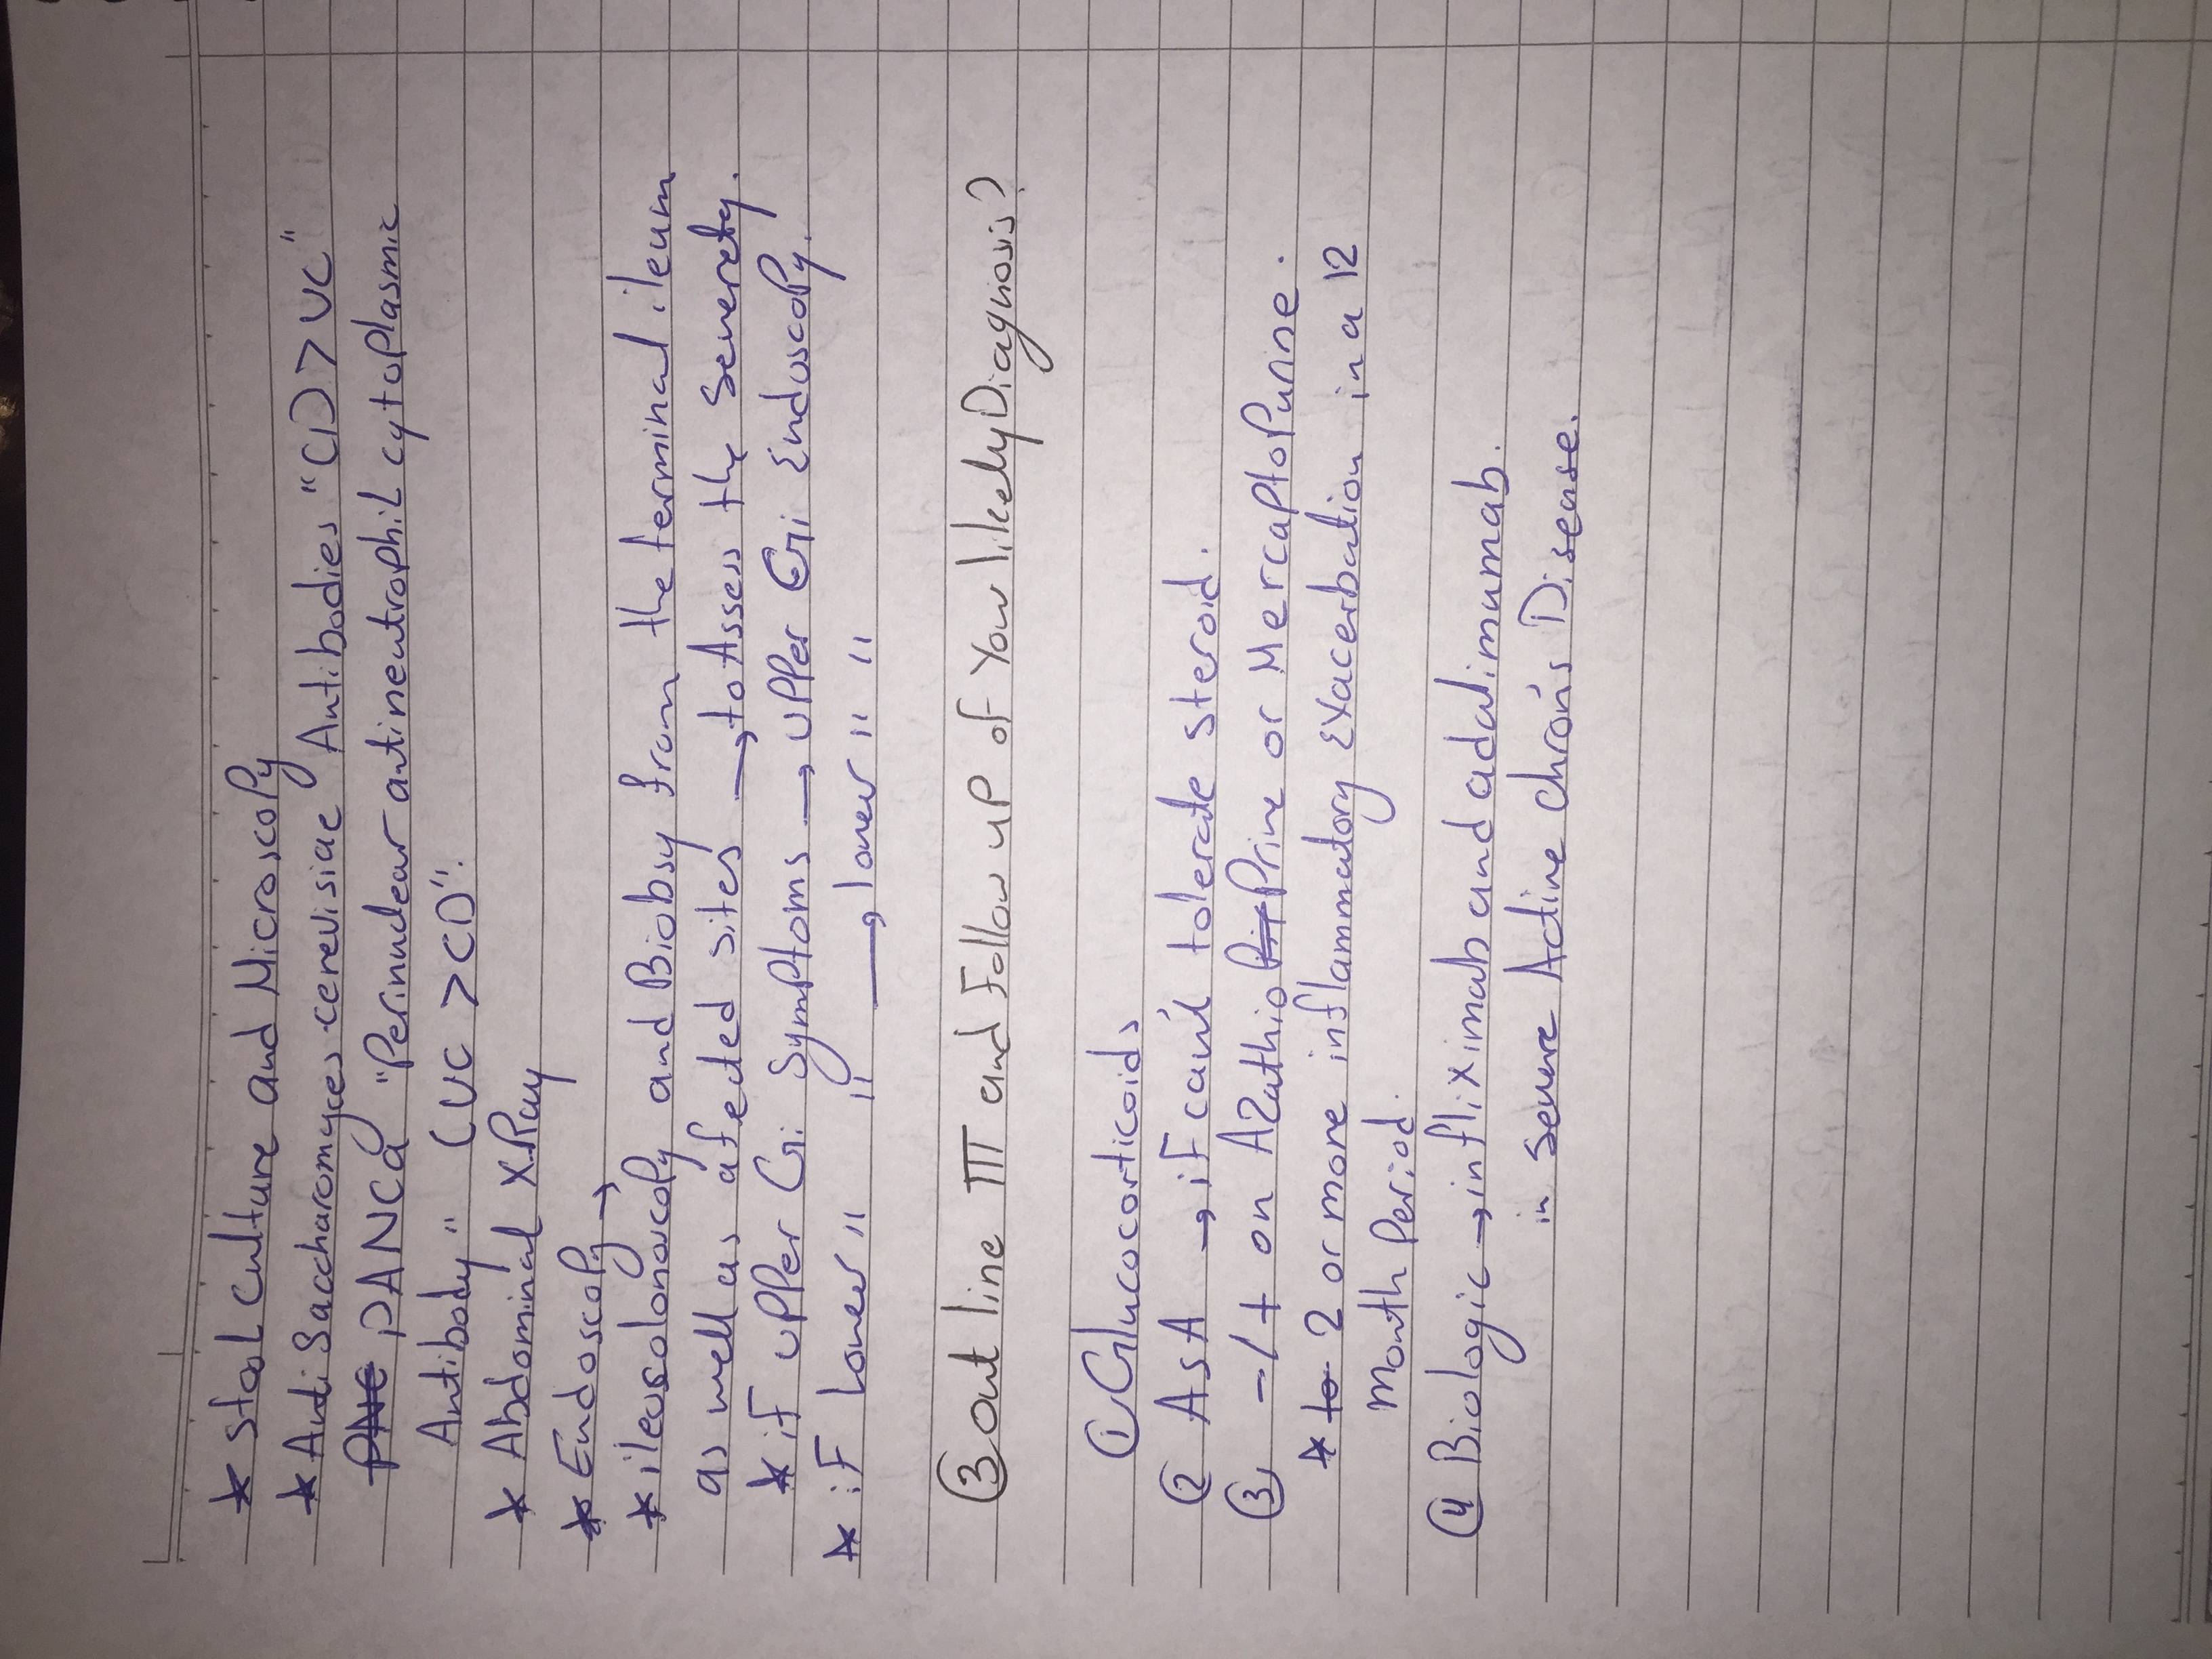 * stool culture and Microscopy
* Anti Saccharomyces cerevisiae Antibodies "CD > UC"
PANCa "Perinuclear antineutrophil cytoplasmic
Antibody" (UC > CD".
* Abdominal XRay
* Endoscopy →
* ileuscolonoscopy and Biobsy from the terminal ileum
as well as afected sites → to Assess the severety.
* iF uPPer Gi Symptoms → uPPer Gi Endoscopy.
* iF lower " " → lower " "
③ out line TTT and Follow uP of You likely Diagnosis?
① Glucocorticoids
② ASA → iF can't tolerate steroid.
③ -/+ on AzathioPrine or MercaptoPurine.
* 2 or more inflammatory Exacerbation in a 12
month Period.
④ Biologic → infliximab and adalimumab.
in severe Active chron's Disease.